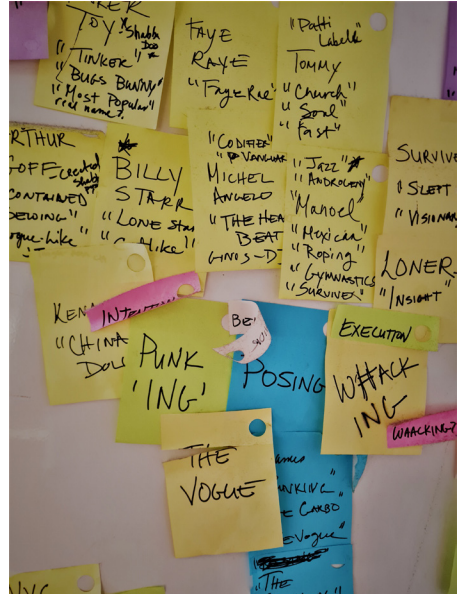 TOY
"Shabba
Doo"
"TINKER"
"BUGS BUNNY"
"MOST POPULAR"
real name?
FAYE
RAYE
"FAYE Rae"
"Patti
Labelle
TOMMY
"Church"
"Soul"
"Fast"
RTHUR
GOFF created
CONTAINED"
ogue-like
BILLY
STARR
"LONE Star
"CODIFIER"
MICHEL
ANGELO
"THE HEA
BEAT
GINOS-D
"JAZZ"
"ANDROGENY"
"Manoel"
"Mexican"
"Roping"
"GYMNASTICS
"SURVIVER"
SURVIVE
"SLEFT
"VISIONAR
LONER
"INSIGHT"
KEN
"CHINA
DOLL
INTENTION
PUNK
'ING'
BE
POSING
EXECUTION
WHACK
ING
WAACKING?
THE
VOGUE
NKING"
E GARBO
eVogue"
"THE
NYC